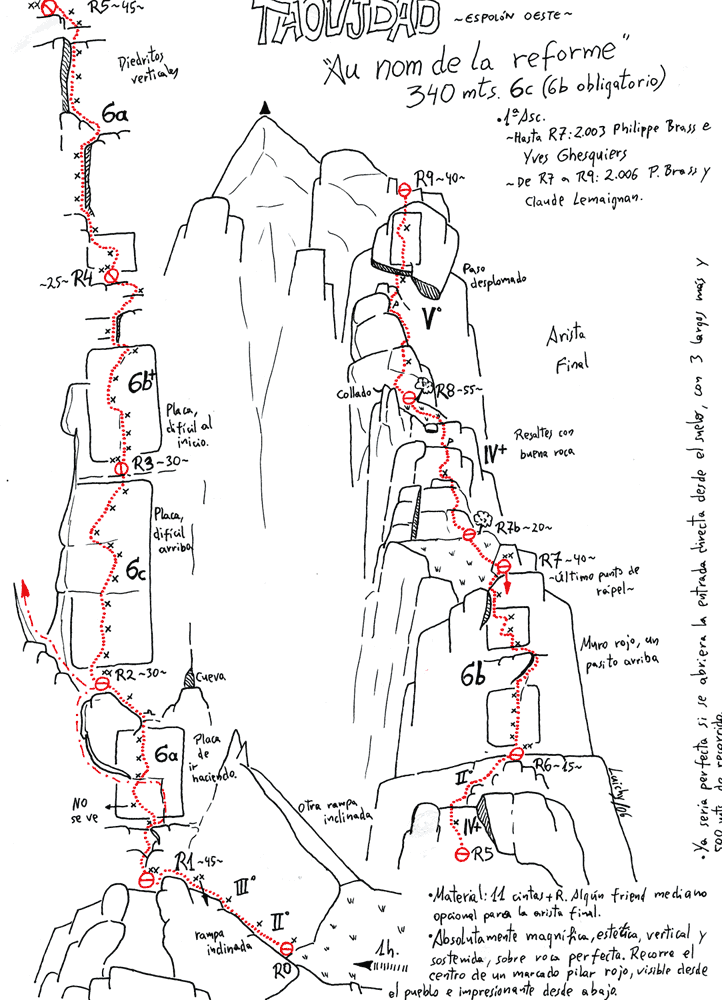 TAOUJDAD ~ESPOLÓN OESTE~
"Au nom de la reforme"
340 mts. 6c (6b obligatorio)
•1ª Asc.
~Hasta R7: 2.003 Philippe Brass e
Yves Ghesquiers
~De R7 a R9: 2.006 P. Brass y
Claude Lemaignan.
R5~45~
Diedritos
verticales
6a
~25~ R4
6b+
Placa,
difícil al
inicio.
R3~30~
Placa,
difícil
arriba
6c
R2~30~
Cueva
6a
Placa
de
ir
haciendo.
NO
se ve
R1~45~
III°
II°
rampa
inclinada
R0
1h.
Otra rampa
inclinada
R9~40~
Paso
desplomado
V°
Arista
Final
Collado
R8~55~
IV+
Resaltes con
buena roca
R7b~20~
R7~40~
~Último punto de
rápel~
Muro rojo, un
pasito arriba
6b
R6~15~
II°
IV+
R5
Luichy/06
•Material: 11 cintas+R. Algún friend mediano
opcional para la arista final.
•Absolutamente magnífica, estética, vertical y
sostenida, sobre roca perfecta. Recorre el
centro de un marcado pilar rojo, visible desde
el pueblo e impresionante desde abajo.
•Ya sería perfecta si se abriera la entrada directa desde el suelo, con 3 largos más y
500 mts. de recorrido.